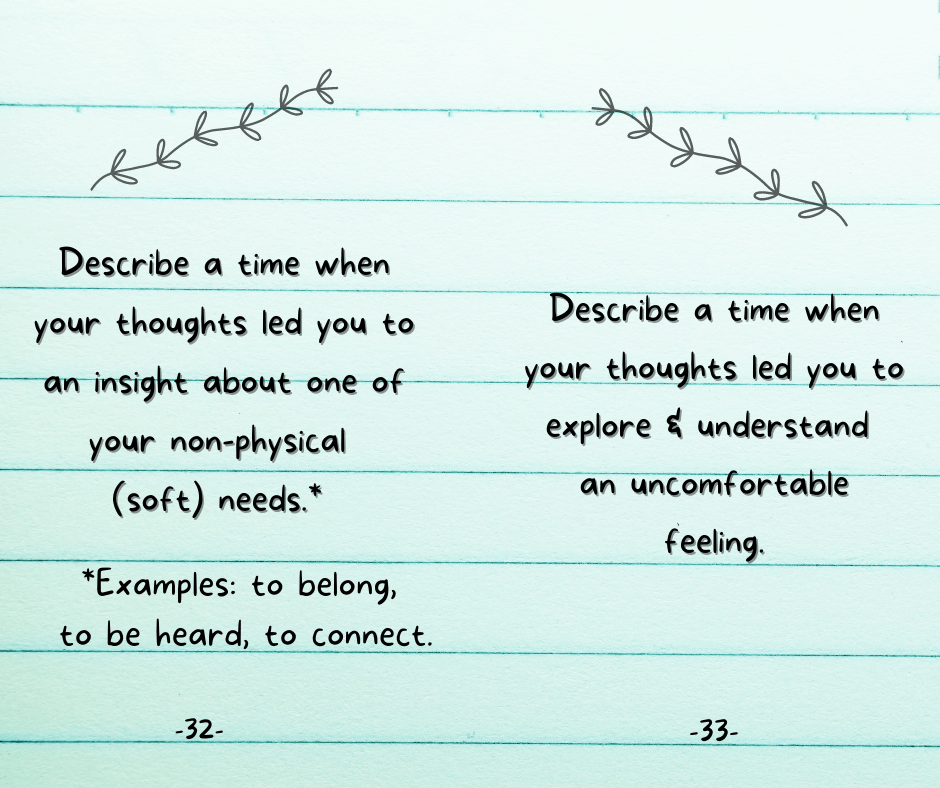 Describe a time when
your thoughts led you to
an insight about one of
your non-physical
(soft) needs.*
*Examples: to belong,
to be heard, to connect.
-32-
Describe a time when
your thoughts led you to
explore & understand
an uncomfortable
feeling.
-33-